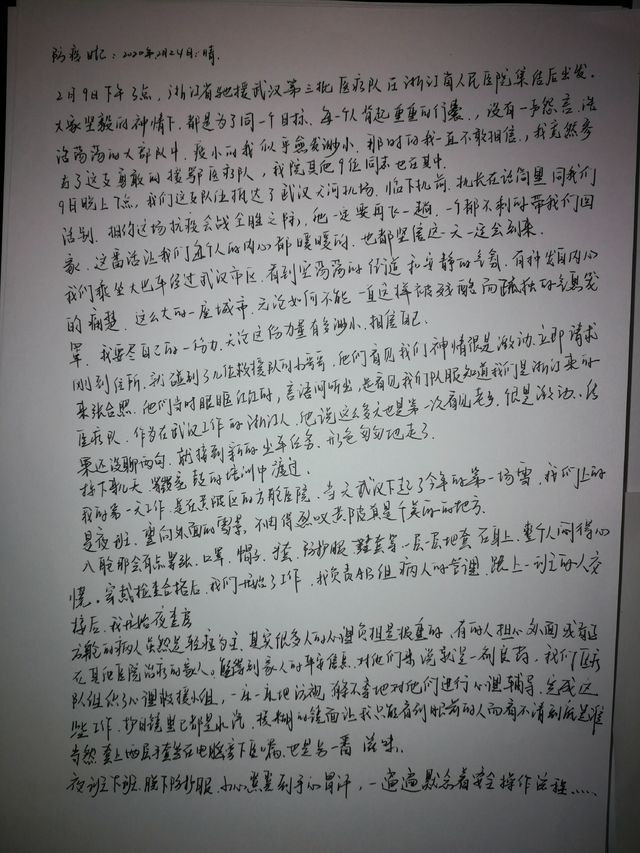 防疫日记：2020年2月24日：晴.
2月9日下午3点，浙江省驰援武汉第三批医疗队在浙江省人民医院集结后出发.
大家坚毅的神情下，都是为了同一个目标、每一个人背起重重的行囊，没有一声怨言、浩
浩荡荡的大部队中，瘦小的我似乎愈发渺小、那时的我一直不敢相信，我竟然参
与了这支勇敢的援鄂医疗队，我院其他9位同志也在其中.
9日晚上7点，我们这支队伍抵达了武汉天河机场、临下机前、机长在话筒里同我们
话别、相约这场抗疫会战全胜之际，他一定要再飞一趟、一个都不剩的带我们回
家、这番话让我们每个人的内心都暖暖的、也都坚信这一天一定会到来.
我们乘坐大巴车经过武汉市区、看到空荡荡的街道和安静的氛围、有种发自内心
的痛楚、这么大的一座城市、无论如何不能一直这样被残酷而孤独的气息笼
罩、我要尽自己的一份力、无论这份力量有多渺小、相信自己.
刚到住所、就碰到了几位救援队的书哥、他们看见我们神情很是激动、立即请求
来张合照、他们当时眼眶红红的，言语间听出、是看见我们队服知道我们是浙江来的
医疗队、作为在武汉工作的浙江人、他说这么多天也是第一次看见老乡、很是激动、结
果还没聊两句、就接到新的出车任务、形色匆匆地走了.
接下来几天、紧锣密鼓的培训中渡过.
我的第一天工作、是在黄陂区的方舱医院、当天武汉下起了今年的第一场雪、我们上的
是夜班、望向外面的雪景、不由得感叹黄陂真是个美丽的地方.
入舱那会有点紧张、口罩、帽子、手套、防护服、鞋套等一层一层地套在身上、整个人闷得心
慌。穿戴检查合格后、我们开始了工作、我负责AB组病人的管理、跟上一班的人交
接后、我开始夜查房
方舱的病人虽然是轻症为主、其实很多人的心理负担是很重的、有的人担心外面或者正
在其他医院治疗的家人、能得到家人的平安信息、对他们来说就是一剂良药、我们医疗
队组织了心理救援小组，一床一床地访视、有条不紊地对他们进行心理辅导、完成这
些工作、护目镜里已都是水汽、模糊的镜面让我只能看到眼前的人而看不清到底是谁
当然套上两层手套在电脑旁下医嘱、也是另一番滋味.
夜班下班、脱下防护服、小心翼翼到手心冒汗，一遍遍默念着安全操作流程……